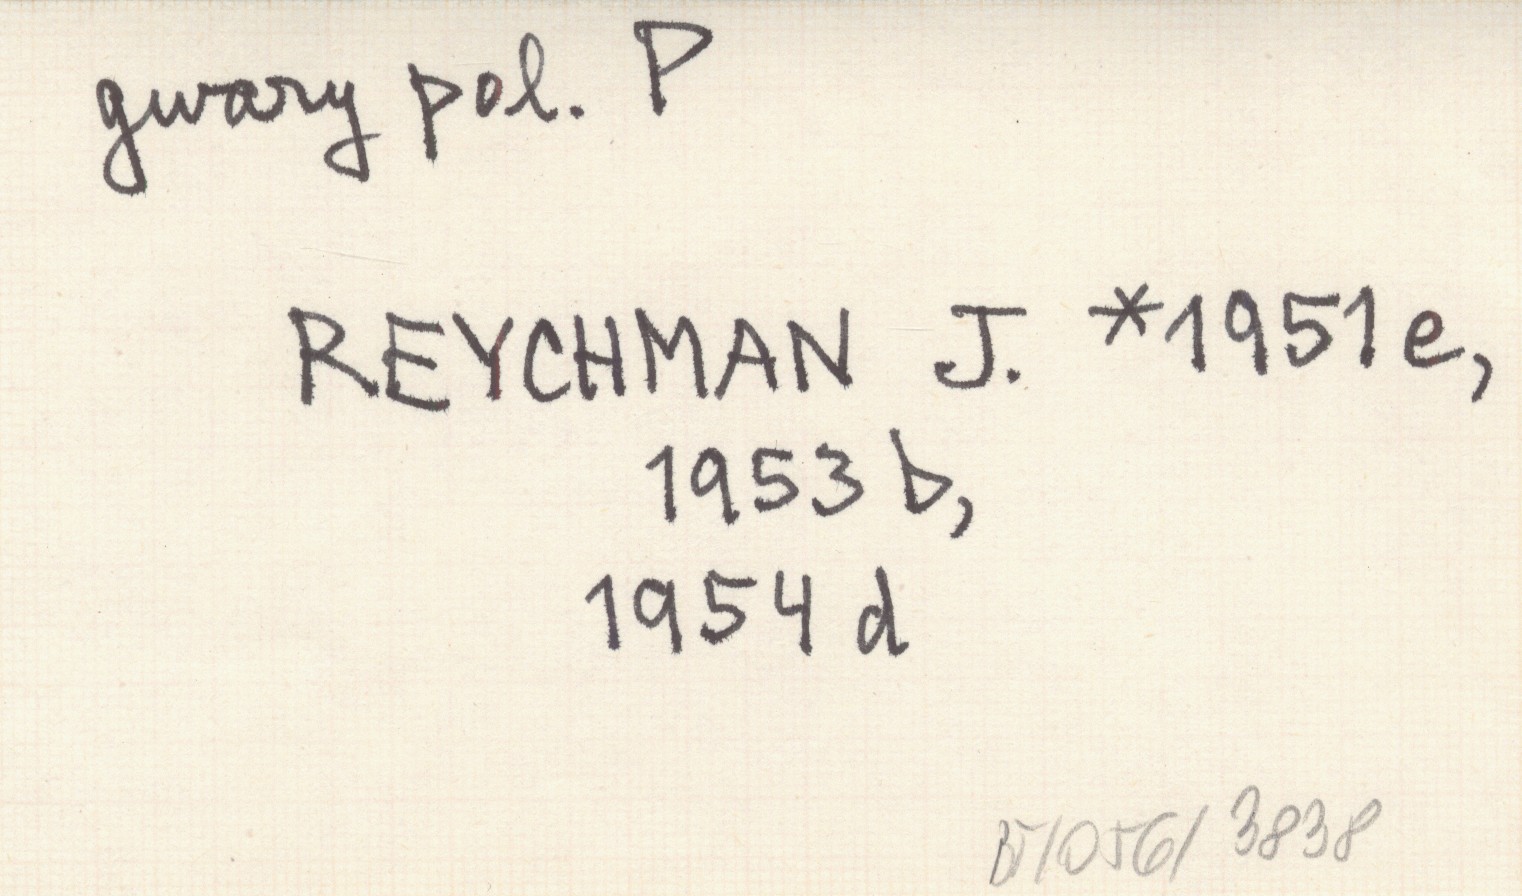 gwary pol. P
REYCHMAN J. *1951e,
1953 b,
1954 d
3838